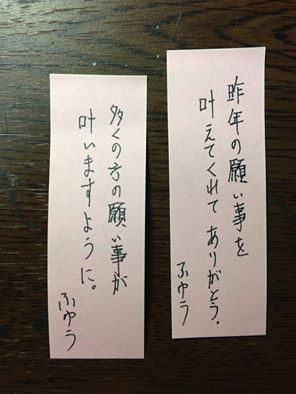 昨年の願い事を
叶えてくれてありがとう.
ふゆう
多くの方の願い事が
叶いますように。
ふゆう